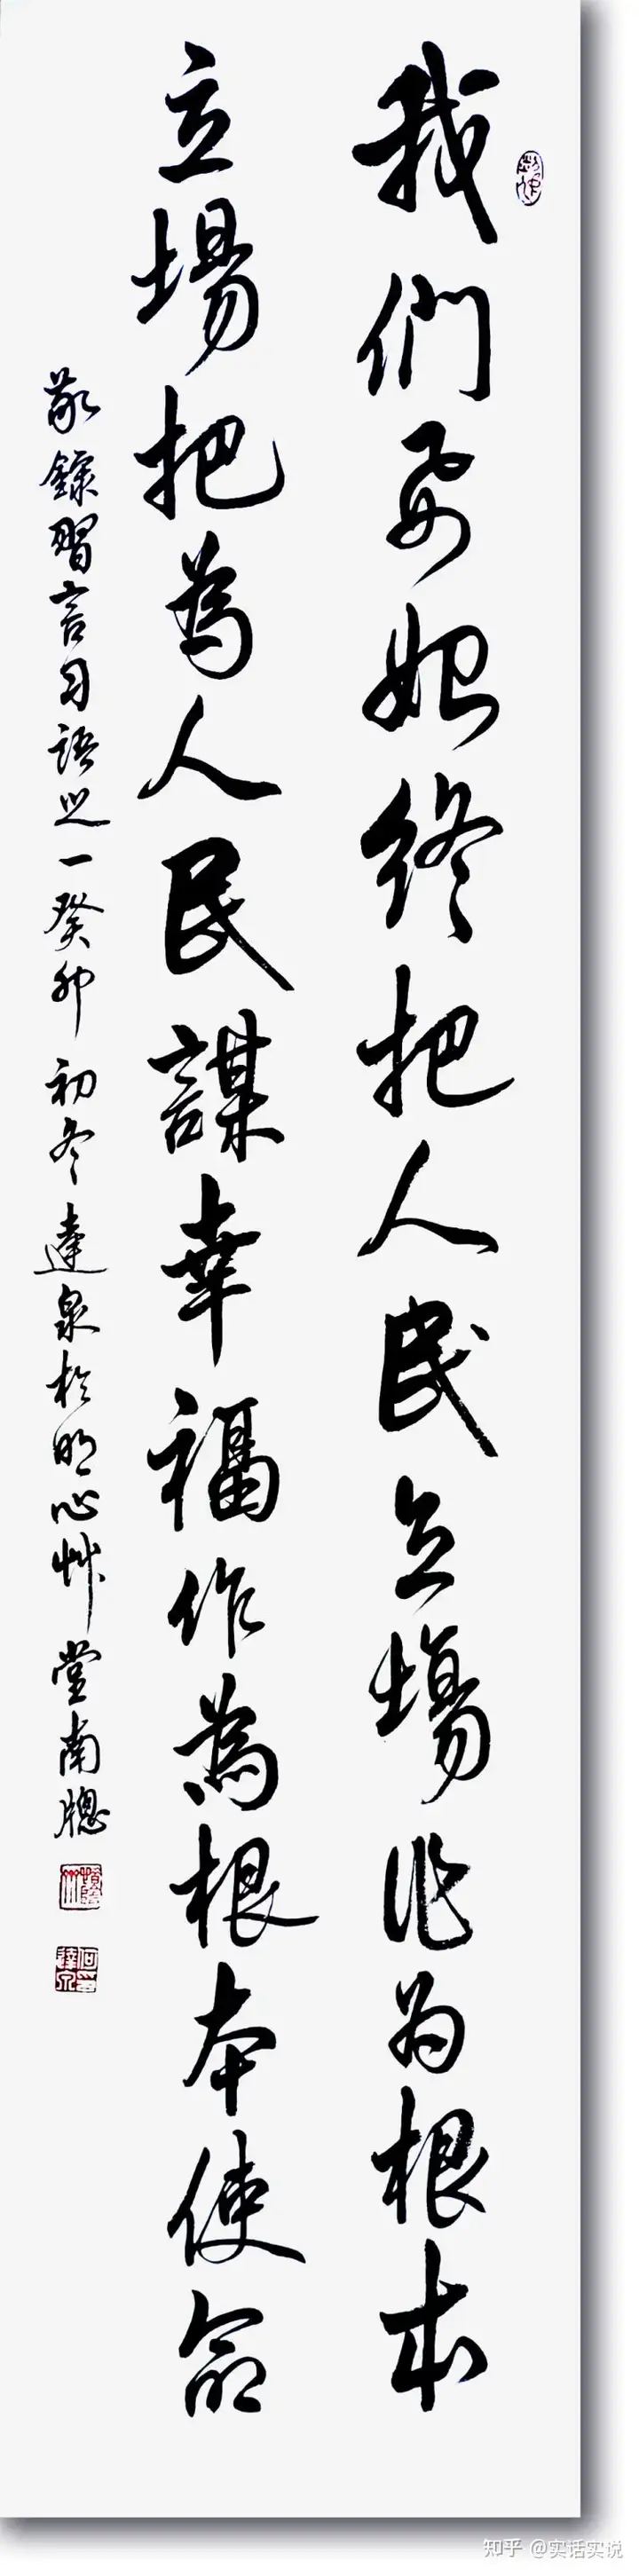 我們要始終把人民立場作为根本
立場把為人民謀幸福作為根本使命
敬錄習言习語之一癸卯初冬達泉於明心艸堂南牕
知乎 @实话实说